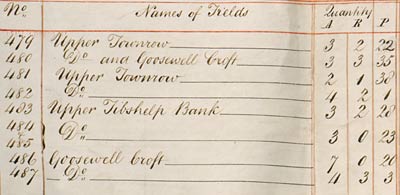 No. Names of Fields Quantity
A R P
479 Upper Townrow 3 2 22
480 Do. and Goosewell Croft 3 3 35
481 Upper Townrow 2 1 38
482 Do. 4 2 1
483 Upper Tibshelp Bank 3 2 28
484
Do. 3 0 23
485
486 Goosewell Croft 7 0 20
487 Do. 4 3 3